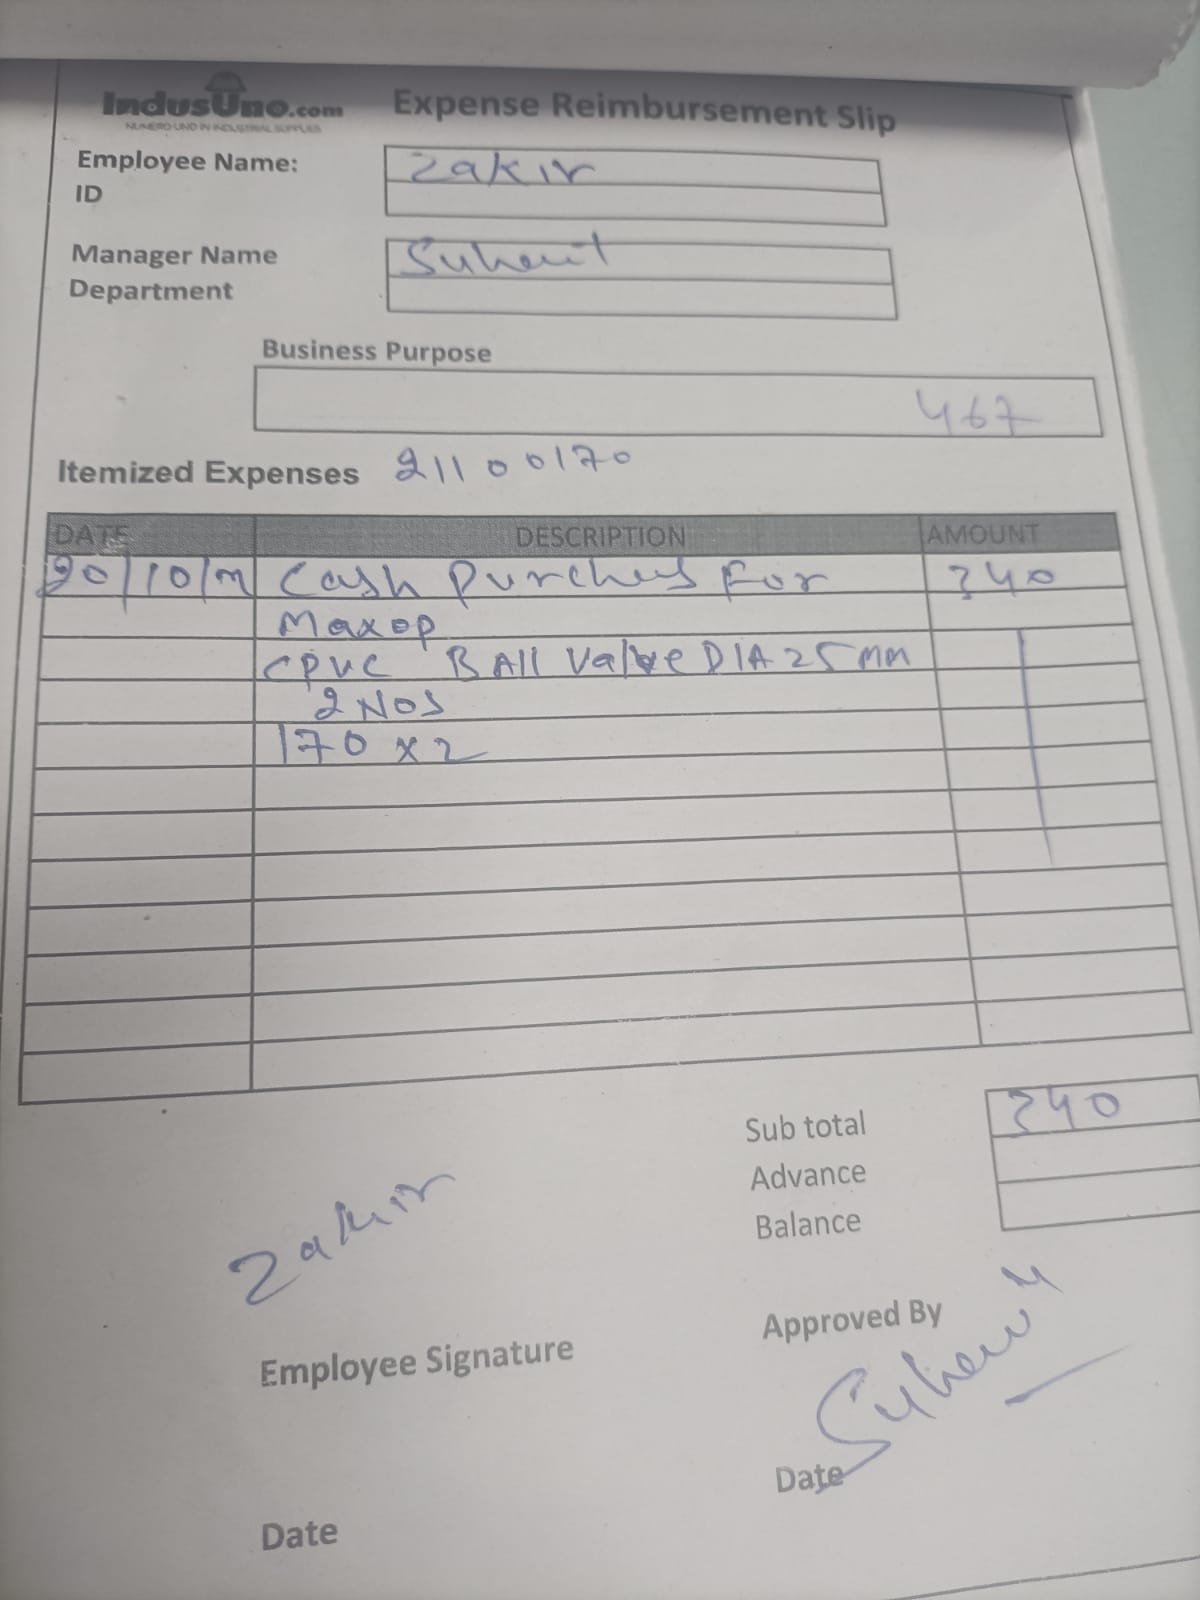 IndusUno.com
NUMERO UNO IN INDUSTRIAL SUPPLIES
Expense Reimbursement Slip
Employee Name: Zakir
ID
Manager Name
Department
Business Purpose
467
Itemized Expenses 21100170
DATE DESCRIPTION AMOUNT
20/10/ Cash Purches For 340
Maxop
CPVC BAll Valve DIA 25 mm
2 NOS
170 x 2
Sub total 340
Advance
Balance
Zakir
Approved By
Employee Signature
Date
Date